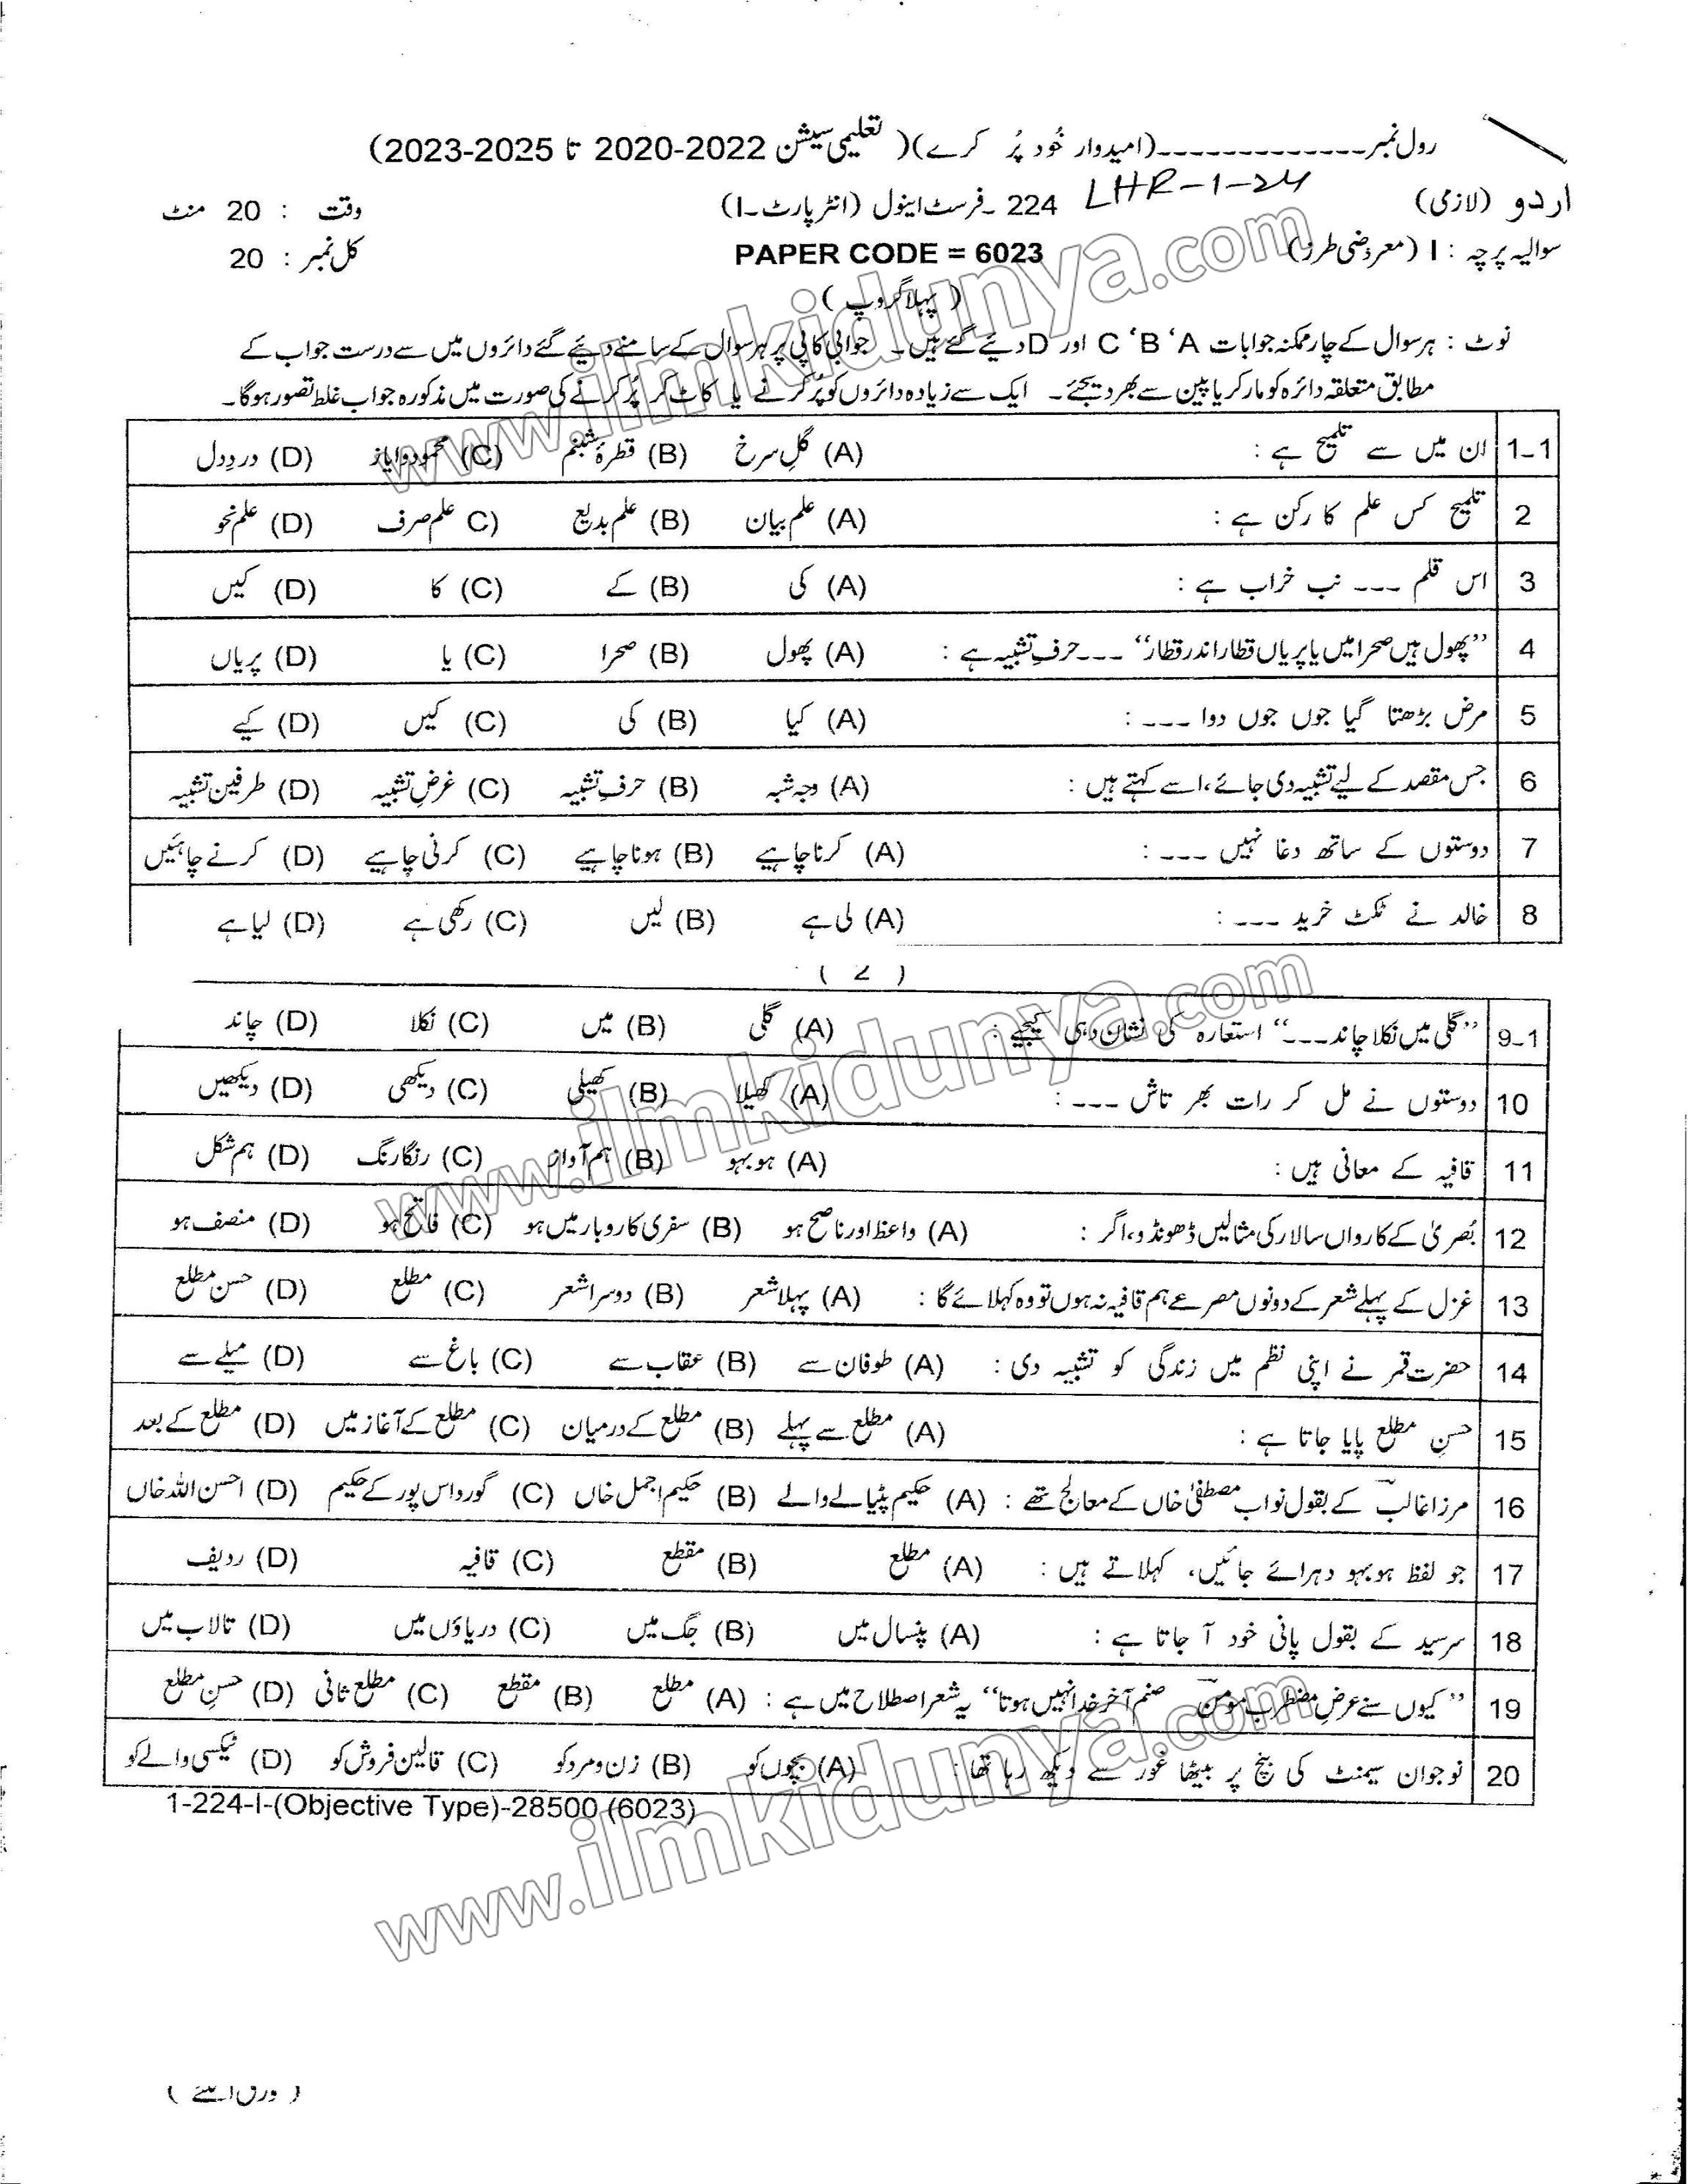 رول نمبر-------------(امیدوار خُود پُر کرے)( تعلیمی سیشن 2022-2020 تا 2025-2023)
اردو (لازمی) LHR-1-24 224 ۔فرسٹ اینول (انٹر پارٹ-I) وقت : 20 منٹ
سوالیہ پرچہ : I (معروضی طرز) PAPER CODE = 6023 کل نمبر : 20
(پہلا گروپ)
نوٹ : ہر سوال کے چار ممکنہ جوابات C ‘B ‘A اور D دیئے گئے ہیں۔ جوابی کاپی پر ہر سوال کے سامنے دیئے گئے دائروں میں سے درست جواب کے
مطابق متعلقہ دائرہ کو مارکر یا پین سے بھر دیجئے۔ ایک سے زیادہ دائروں کو پُر کرنے یا کاٹ کر پُر کرنے کی صورت میں مذکورہ جواب غلط تصور ہوگا۔
1-1 ان میں سے تلمیح ہے : (A) گلِ سرخ (B) قطرۂ شبنم (C) محمود و ایاز (D) دردِ دل
2 تلمیح کس علم کا رکن ہے : (A) علم بیان (B) علم بدیع (C علم صرف (D) علم نحو
3 اس قلم --- نب خراب ہے : (A) کی (B) کے (C) کا (D) کیں
4 ”پھول ہیں صحرا میں یا پریاں قطار اندر قطار“ ---حرفِ تشبیہ ہے : (A) پھول (B) صحرا (C) یا (D) پریاں
5 مرض بڑھتا گیا جوں جوں دوا --- : (A) کیا (B) کی (C) کیں (D) کیے
6 جس مقصد کے لیے تشبیہ دی جائے، اسے کہتے ہیں : (A) وجہ شبہ (B) حرفِ تشبیہ (C) غرضِ تشبیہ (D) طرفین تشبیہ
7 دوستوں کے ساتھ دغا نہیں --- : (A) کرنا چاہیے (B) ہونا چاہیے (C) کرنی چاہیے (D) کرنے چاہئیں
8 خالد نے ٹکٹ خرید --- : (A) لی ہے (B) لیں (C) رکھی ہے (D) لیا ہے
( 2 )
9-1 ”گلی میں نکلا چاند---“ استعارہ کی نشان دہی کیجیے : (A) گلی (B) میں (C) نکلا (D) چاند
10 دوستوں نے مل کر رات بھر تاش --- : (A) کھیلا (B) کھیلی (C) دیکھی (D) دیکھیں
11 قافیہ کے معانی ہیں : (A) ہوبہو (B) ہم آواز (C) رنگارنگ (D) ہم شکل
12 بُصریٰ کے کارواں سالار کی مثالیں ڈھونڈو، اگر : (A) واعظ اور ناصح ہو (B) سفری کاروبار میں ہو (C) فاتح ہو (D) منصف ہو
13 غزل کے پہلے شعر کے دونوں مصرعے ہم قافیہ نہ ہوں تو وہ کہلائے گا : (A) پہلا شعر (B) دوسرا شعر (C) مطلع (D) حسن مطلع
14 حضرت قمر نے اپنی نظم میں زندگی کو تشبیہ دی : (A) طوفان سے (B) عقاب سے (C) باغ سے (D) میلے سے
15 حسنِ مطلع پایا جاتا ہے : (A) مطلع سے پہلے (B) مطلع کے درمیان (C) مطلع کے آغاز میں (D) مطلع کے بعد
16 مرزا غالبؔ کے بقول نواب مصطفیٰ خاں کے معالج تھے : (A) حکیم پٹیالے والے (B) حکیم اجمل خاں (C) گورداس پور کے حکیم (D) احسن اللہ خاں
17 جو لفظ ہوبہو دہرائے جائیں، کہلاتے ہیں : (A) مطلع (B) مقطع (C) قافیہ (D) ردیف
18 سرسید کے بقول پانی خود آ جاتا ہے : (A) پنسال میں (B) جگ میں (C) دریاؤں میں (D) تالاب میں
19 ”کیوں سنے عرضِ مضطرب مومنؔ صنم آخر خدا نہیں ہوتا“ یہ شعر اصطلاح میں ہے : (A) مطلع (B) مقطع (C) مطلع ثانی (D) حسنِ مطلع
20 نوجوان سیمنٹ کی بنچ پر بیٹھا غور سے دیکھ رہا تھا : (A) بچوں کو (B) زن و مرد کو (C) قالین فروش کو (D) ٹیکسی والے کو
1-224-I-(Objective Type)-28500 (6023)
( ورق الٹئے )
www.ilmkidunya.com
www.ilmkidunya.com
www.ilmkidunya.com